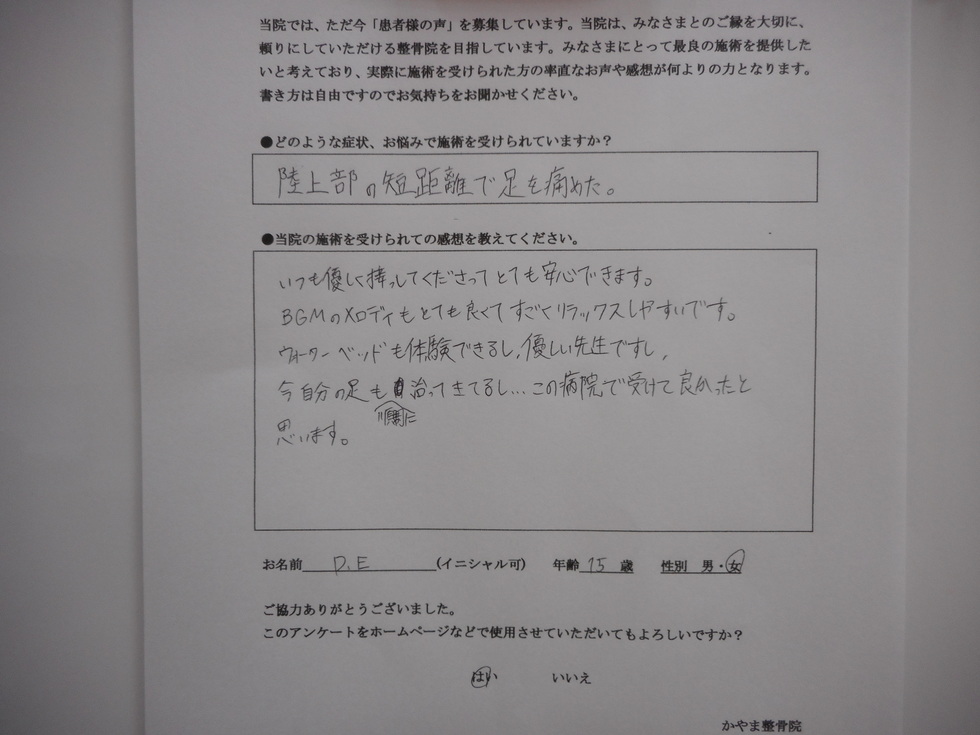 当院では、ただ今「患者様の声」を募集しています。当院は、みなさまとのご縁を大切に、
頼りにしていただける整骨院を目指しています。みなさまにとって最良の施術を提供した
いと考えており、実際に施術を受けられた方の率直なお声や感想が何よりの力となります。
書き方は自由ですのでお気持ちをお聞かせください。
●どのような症状、お悩みで施術を受けられていますか？
陸上部の短距離で足を痛めた。
●当院の施術を受けられての感想を教えてください。
いつも優しく接してくださってとても安心できます。
BGMのメロディもとても良くてすごくリラックスしやすいです。
ウォーターベッドも体験できるし、優しい先生ですし、
今自分の足も治ってきてるし…この病院で受けて良かったと
順調に
思います。
お名前 D.E (イニシャル可) 年齢 15 歳 性別 男・女
ご協力ありがとうございました。
このアンケートをホームページなどで使用させていただいてもよろしいですか？
はい いいえ
かやま整骨院